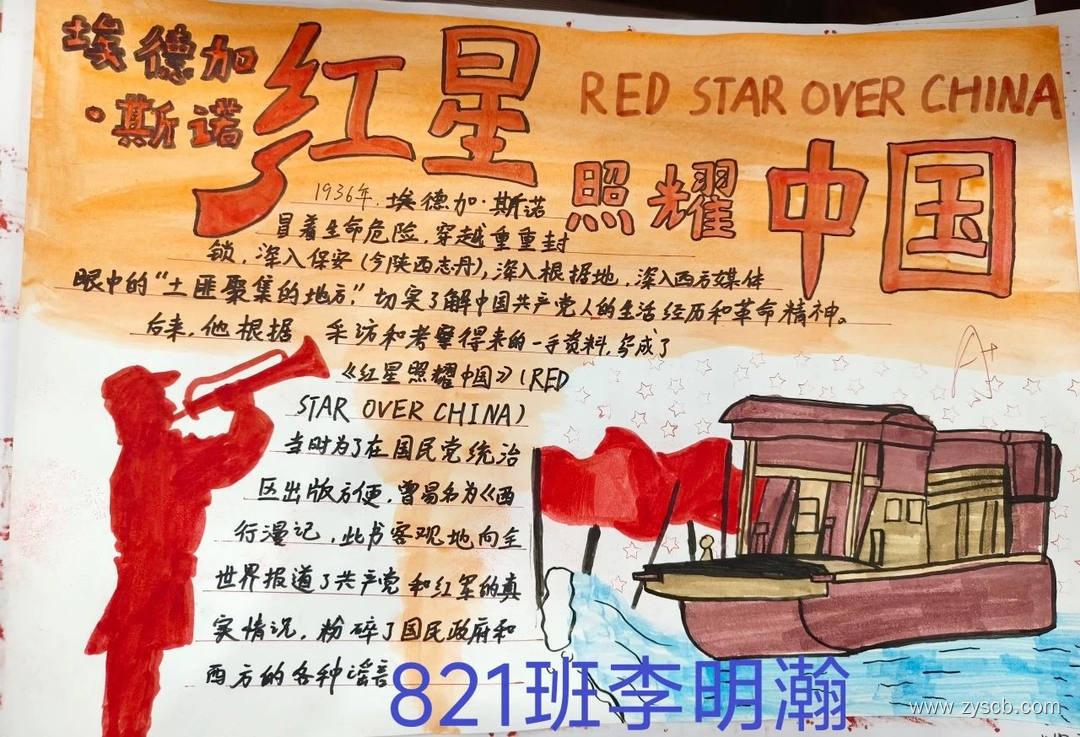 埃德加
·斯诺
红星
RED STAR OVER CHINA
照耀中国
1936年,埃德加·斯诺
冒着生命危险,穿越重重封
锁,深入保安(今陕西志丹),深入根据地,深入西方媒体
眼中的“土匪聚集的地方,”切实了解中国共产党人的生活经历和革命精神。
后来,他根据 采访和考察得来的一手资料,写成了
《红星照耀中国》(RED
STAR OVER CHINA)
当时为了在国民党统治
区出版方便,曾易名为《西
行漫记,此书客观地向全
世界报道了共产党和红军的真
实情况,粉碎了国民政府和
西方的各种谣言
A+
821班李明瀚
www.zyscb.com